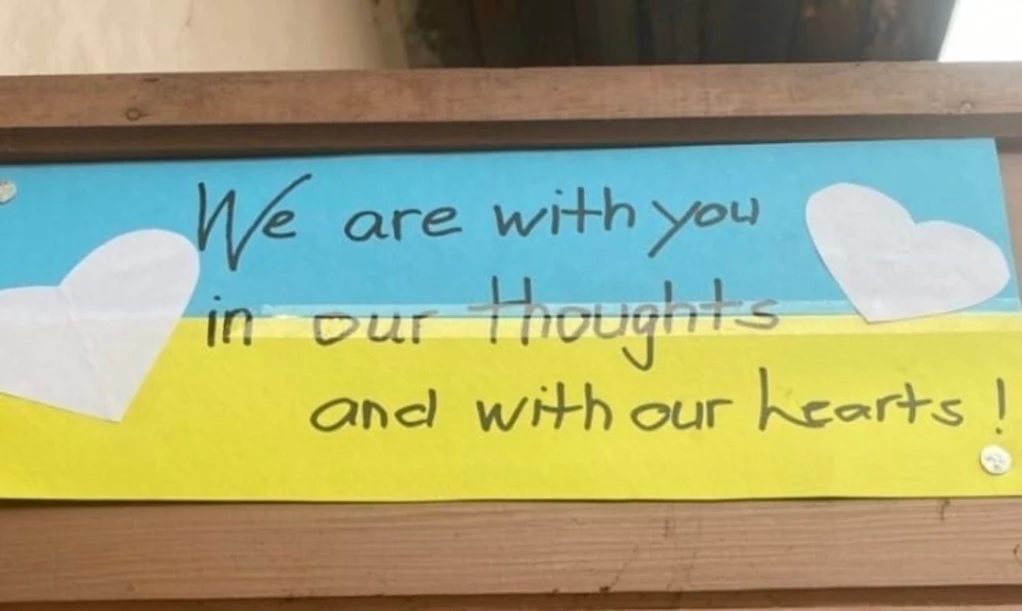 We are with you
in our thoughts
and with our hearts!